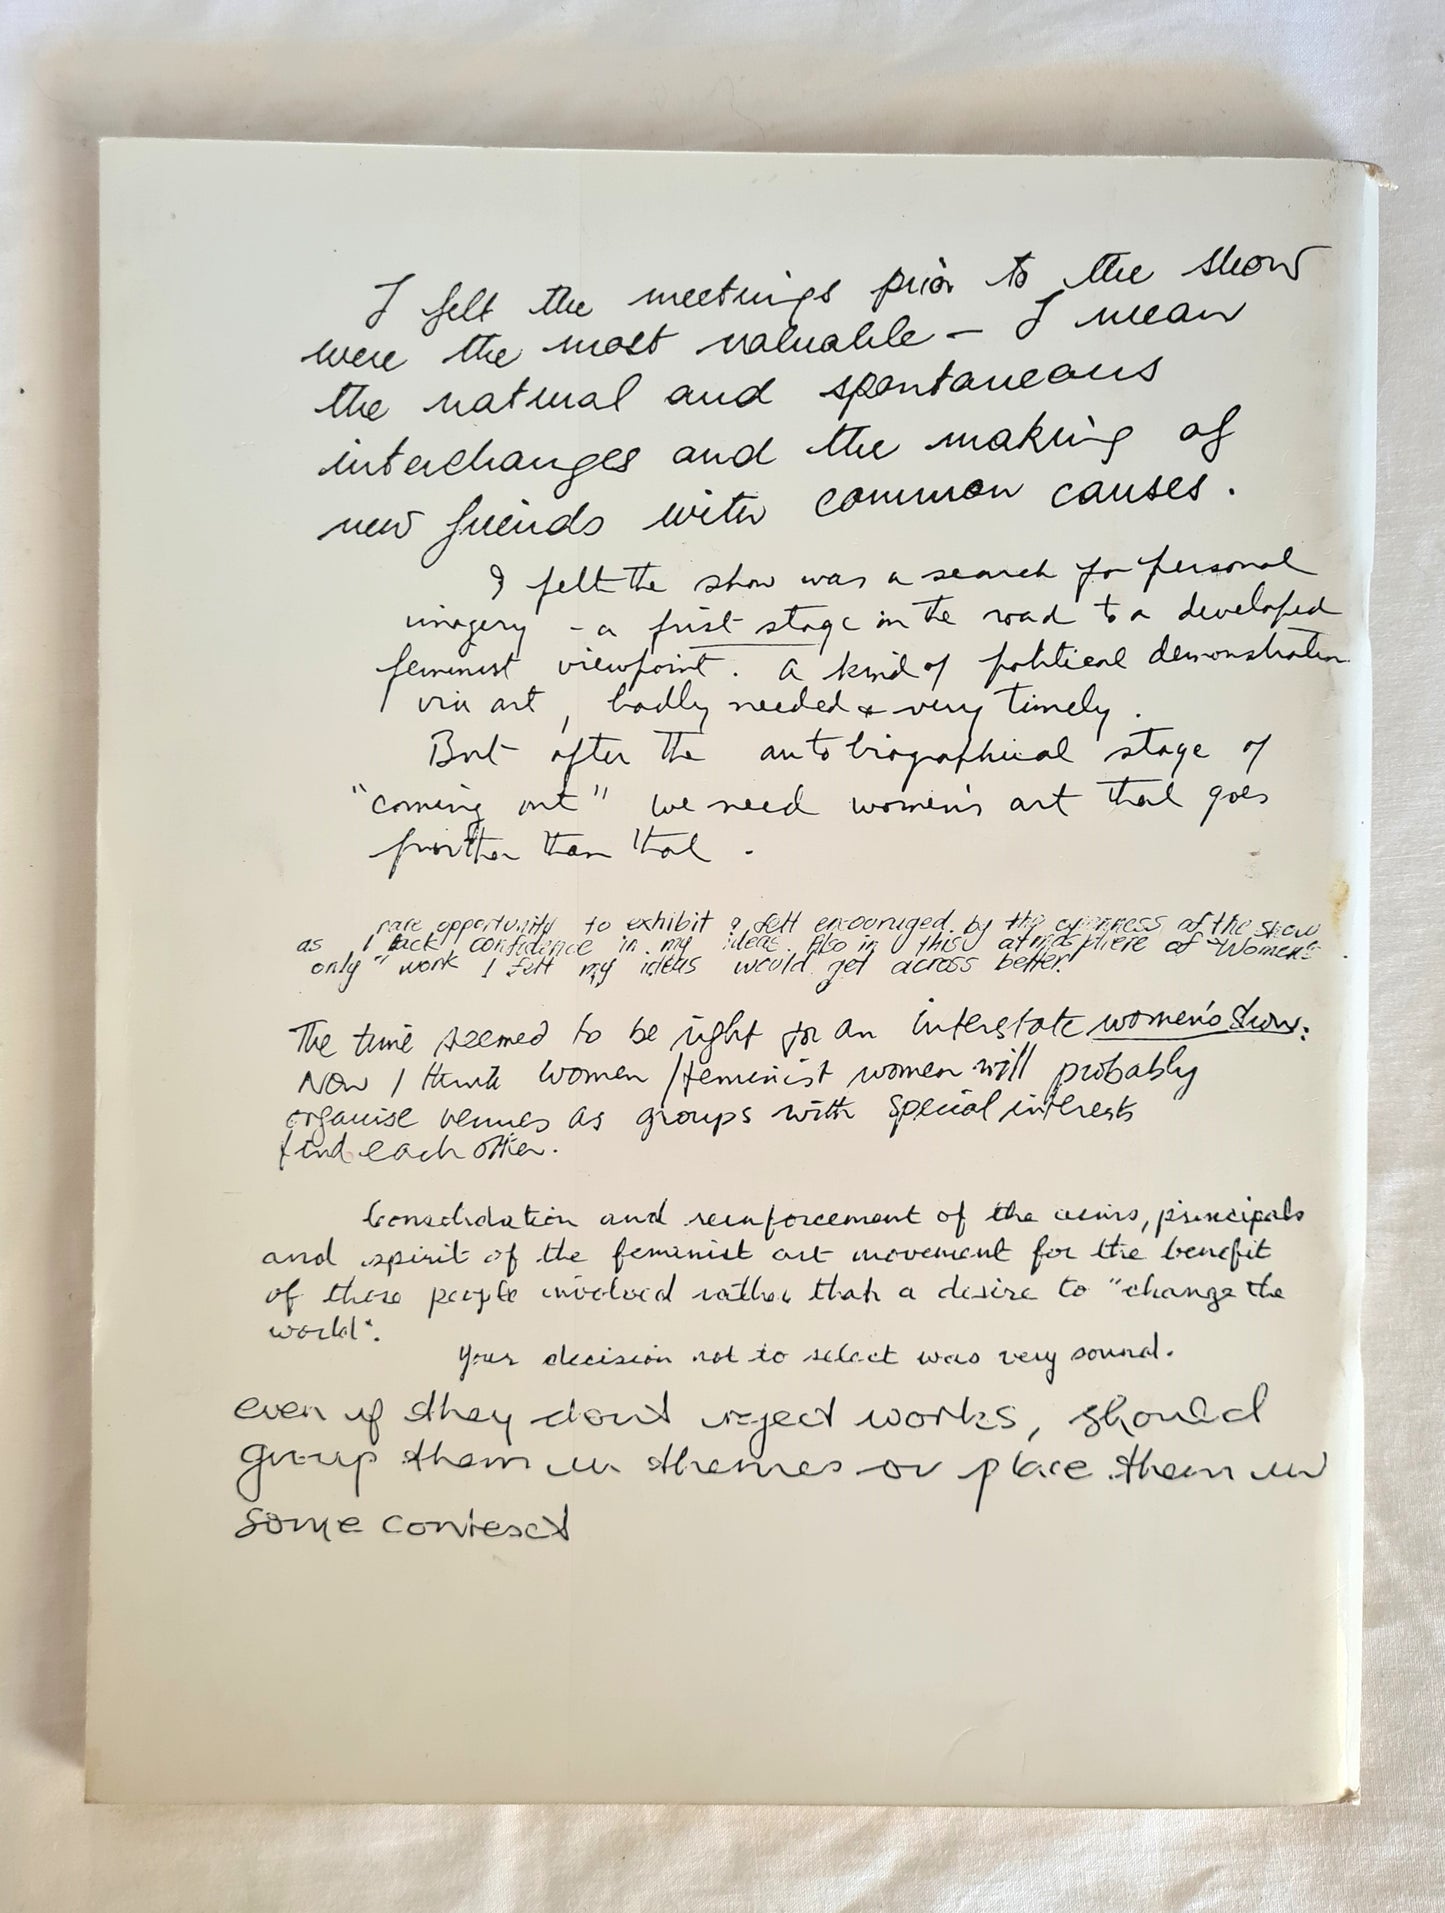 I felt the meetings prior to the show
were the most valuable – I mean
the natural and spontaneous
interchanges and the making of
new friends with common causes.
I felt the show was a search for personal
imagery – a first stage in the road to a developed
feminist viewpoint. A kind of political demonstration
via art, badly needed & very timely.
But after the autobiographical stage of
"coming out" we need women's art that goes
further than that.
rare opportunity to exhibit & felt encouraged by the openness of the show
as I lack confidence in my ideas. Also in this atmosphere of "Women's
only" work I felt my ideas would get across better.
The time seemed to be right for an interstate women's show.
Now I think women/feminist women will probably
organise venues as groups with special interests
find each other.
Consolidation and reinforcement of the aims, principals
and spirit of the feminist art movement for the benefit
of those people involved rather than a desire to "change the
world".
Your decision not to select was very sound.
even if they don't reject works, should
group them in themes or place them in
some context